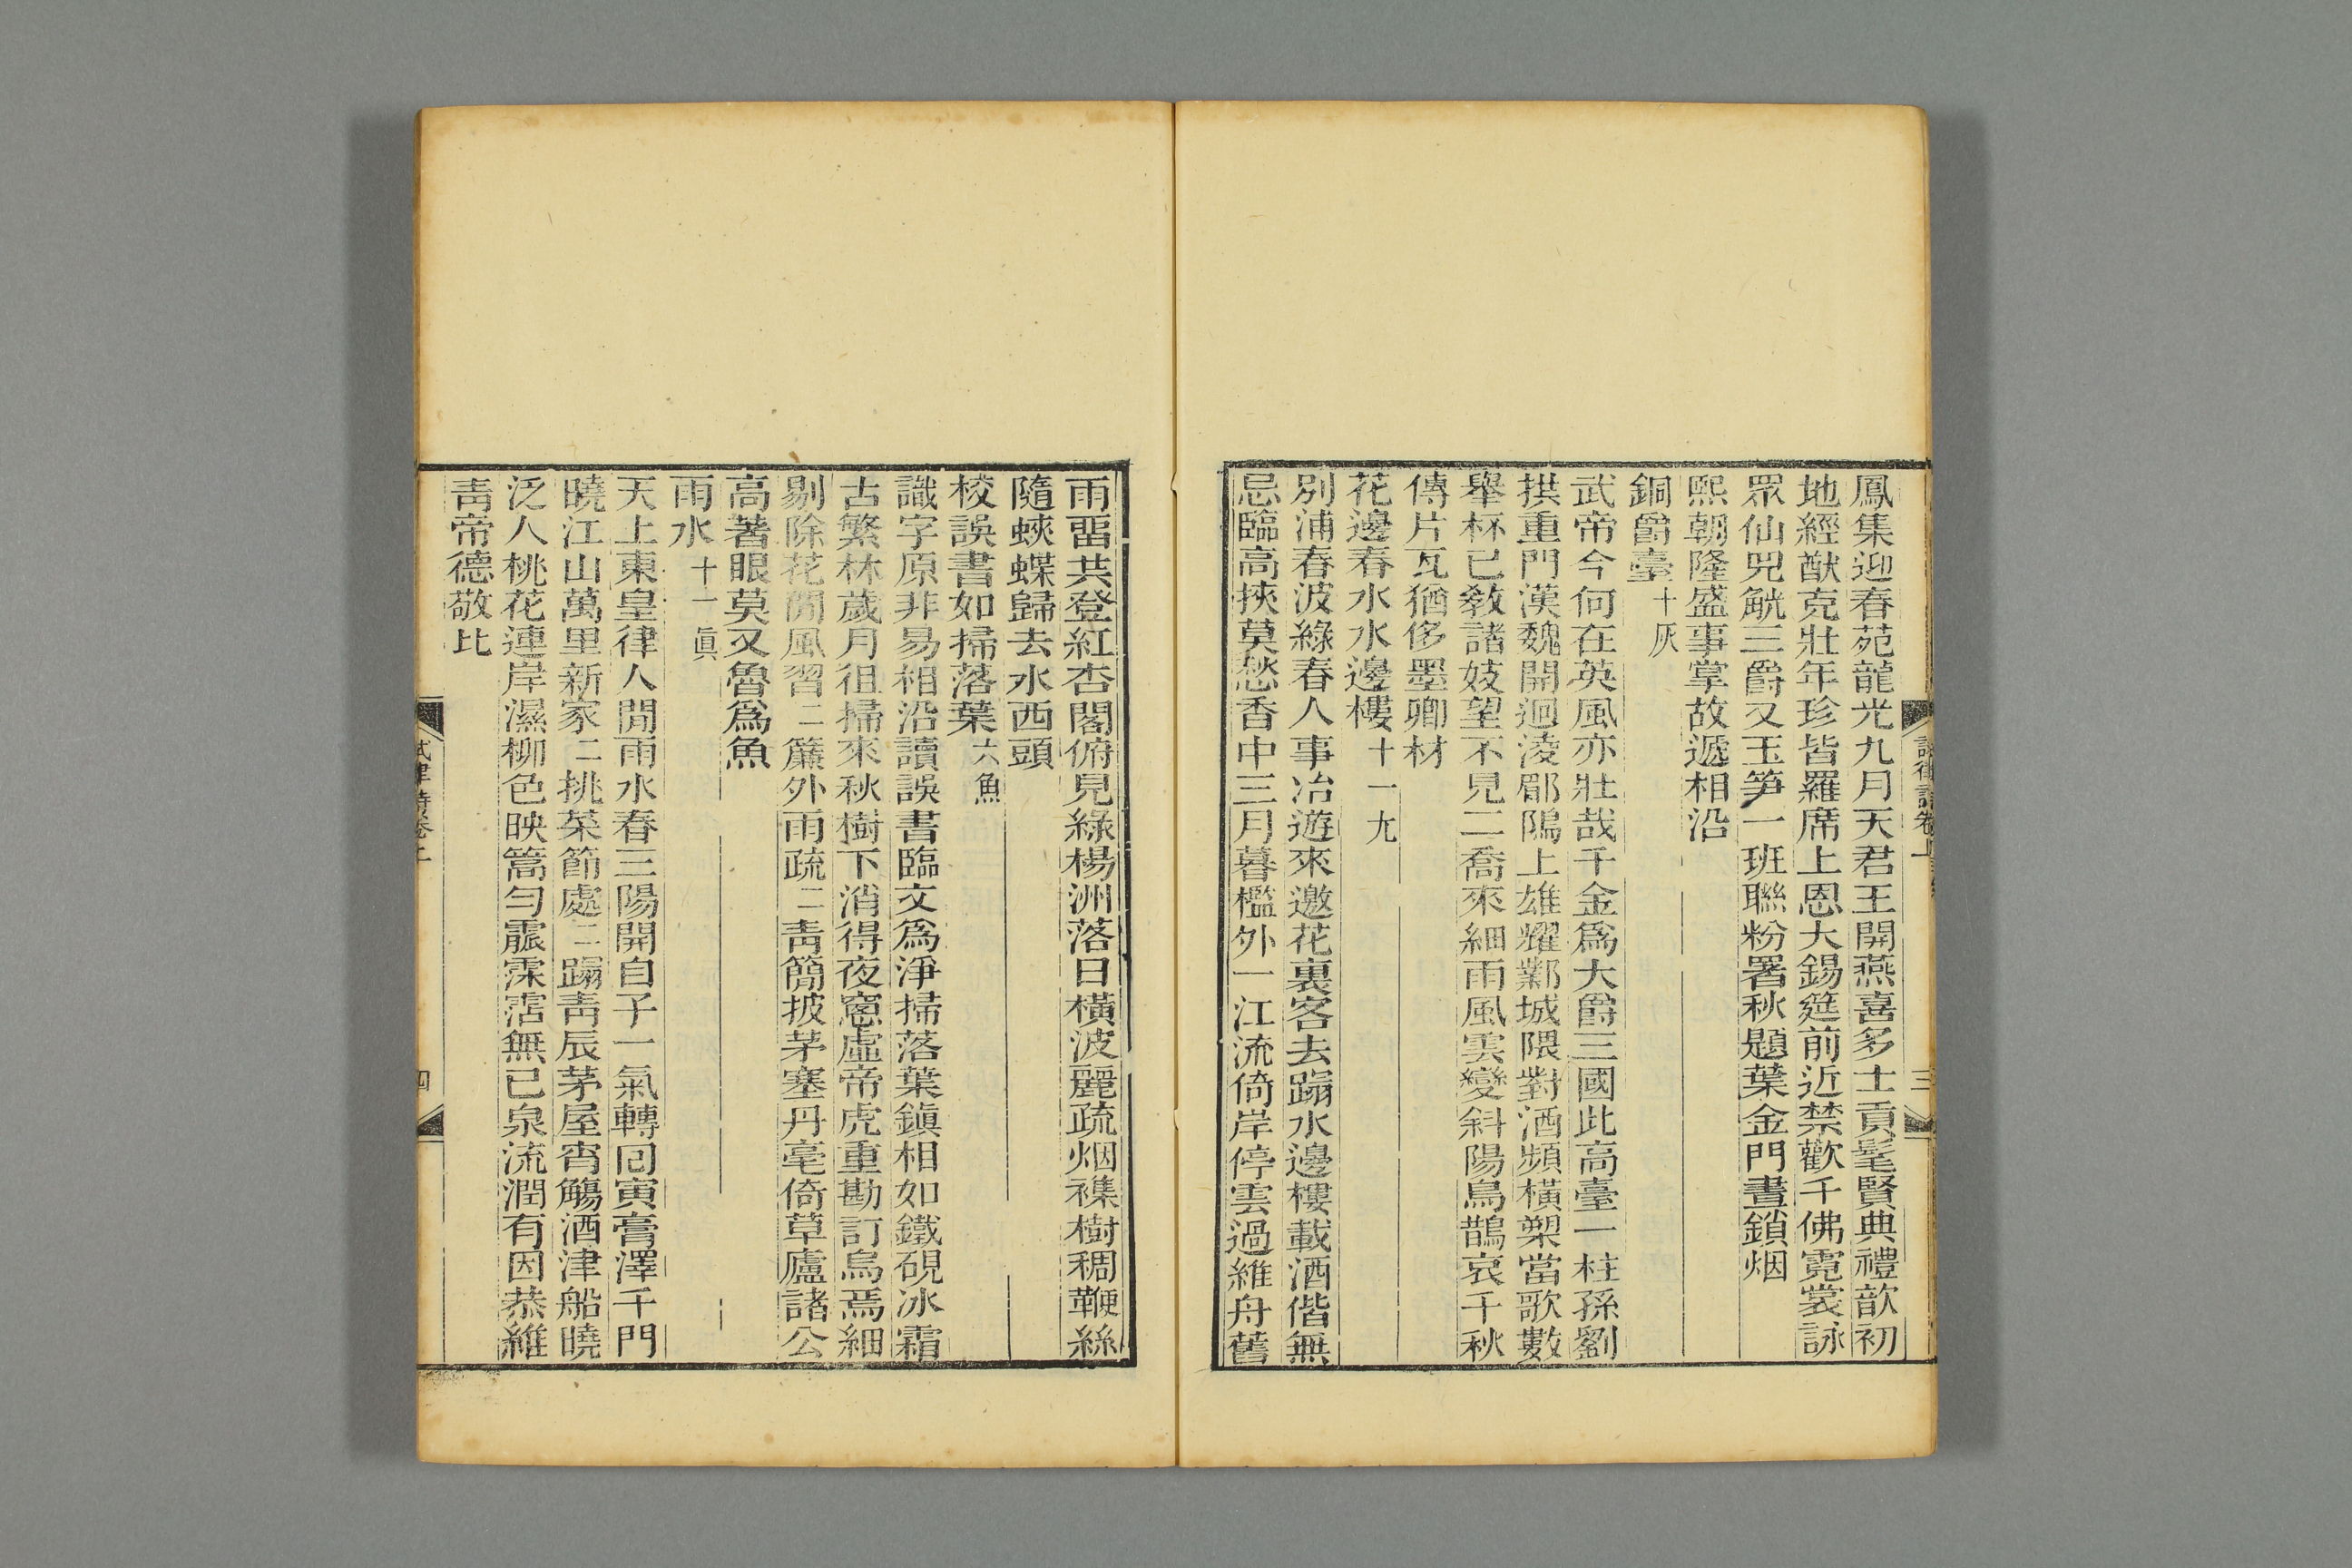 鳳集迎春苑龍光九月天君王開燕喜多士貢髦賢典禮歆初
地經猷克壯年珍皆羅席上恩大錫筵前近禁歡千佛霓裳詠
眾仙兕觥三爵又玉笋一班聯粉署秋題葉金門晝鎖烟
熙朝隆盛事掌故遞相沿
銅爵臺十灰
武帝今何在英風亦壯哉千金爲大爵三國此高臺一柱孫劉
拱重門漢魏開迴淩郿隖上雄耀鄴城隈對酒頻橫槊當歌數
舉杯已教諸妓望不見二喬來細雨風雲變斜陽鳥鵲哀千秋
傳片瓦猶侈墨卿材
花邊春水水邊樓十一尤
別浦春波綠春人事冶遊來邀花裏客去蹋水邊樓載酒偕無
忌臨高挾莫愁香中三月暮檻外一江流倚岸停雲過維舟舊
試律詩卷上
三
雨畱共登紅杏閣俯見綠楊洲落日橫波麗疏烟襍樹稠鞭絲
隨蛺蝶歸去水西頭
校誤書如掃落葉六魚
識字原非易相沿讀誤書臨文爲淨掃落葉鎮相如鐵硯冰霜
古繁林歲月徂掃來秋樹下消得夜窻虛帝虎重勘訂烏焉細
剔除花閒風習二簾外雨疏二靑簡披茅塞丹毫倚草廬諸公
高著眼莫又魯爲魚
雨水十一眞
天上東皇律人閒雨水春三陽開自子一氣轉回寅膏澤千門
曉江山萬里新家二挑菜節處二蹋靑辰茅屋宵觴酒津船曉
泛人桃花連岸濕柳色映篙勻霢霂霑無已泉流潤有因恭維
靑帝德敬比
試律詩卷上
四